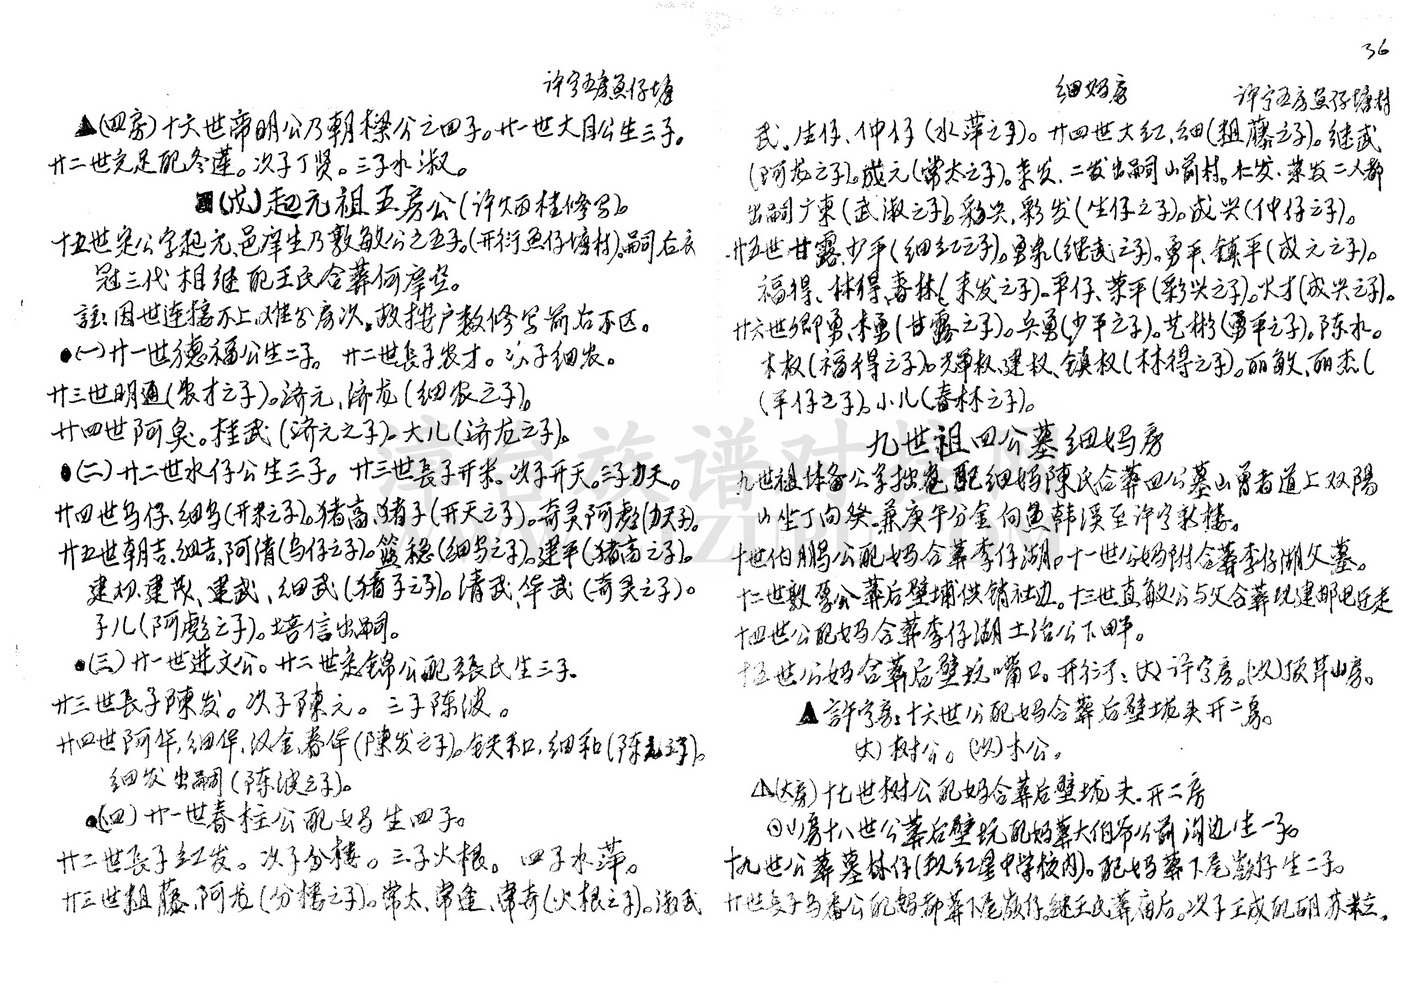 许字五房魚仔塘
▲(四房)十六世帝明公乃朝樑公之四子。廿一世大目公生三子。
廿二世完足配冬蓮。次子丁贤。三子水淑。
(戊)起元祖五房公(许炳桂修写)。
十五世宋公字起元邑庠生乃敦敏公之五子。(开衍魚仔塘村)。嗣后衣
冠三代相继配王氏合葬何摩坔。
註:因世连接不上,难分房次,故按户数修写前后不区。
●(一)廿一世德福公生二子。 廿二世長子农才。次子细农。
廿三世明通(农才之子)。济元、济龙(细农之子)。
廿四世阿臭。桂武(济元之子)。大儿(济龙之子)。
●(二)廿二世水仔公生三子。廿三世長子开米。次子开天。三子力天。
廿四世乌仔、细乌(开米之子)。猪高、猪子(开天之子)。奇灵、阿彪(力天子)。
廿五世朝吉、细吉、阿倩(乌仔之子)。篮稳(细乌之子)。建平(猪高之子)。
建权、建茂、建武、细武(猪子之子)。清武、华武(奇灵之子)。
子儿(阿彪之子)。培信出嗣。
●(三)廿一世进文公。廿二世永锦公配張氏生三子.
廿三世長子陳发。次子陳元。三子陈波。
廿四世阿华,细华,汉金,春华(陳发之子)。铁和,细和(陈元之子)。
细发出嗣(陈波之子)。
●(四)廿一世春柱公配妈生四子。
廿二世長子红发。次子分楼。三子火根。四子水萍。
廿三世粗藤、阿龙(分楼之子)。常太、常逢、常奇(火根之子)。淑武
36
细妈房
许字五房魚仔塘村
武、生仔、仲仔(水萍之子)。廿四世大红、细(粗藤之子)。继武
(阿龙之子)。成元(常太之子)。来发、二发出嗣山前村。仁发、荣发二人都
出嗣广東(武淑之子)。彩兴,彩发(生仔之子)。成兴(仲仔之子)。
廿五世甘露、少平(细红之子)。勇泉(继武之子)。勇平、鎮平(成元之子)。
福得、林得、春林(来发之子)。平仔、荣平(彩兴之子)。火才(成兴之子)。
廿六世乡勇、木勇(甘露之子)。兵勇(少平之子)。艺彬(勇平之子)。陈水。
木权(福得之子)。輝权、建权、镇权(林得之子)。丽敏、丽杰(
(平仔之子)。小儿(春林之子)。
九世祖四公墓细妈房
九世祖体备公字拙菴配细妈陳氏合葬四公墓山曾者道上双陽
山坐丁向癸。兼庚午分金何魚韩溪至许字新楼。
十世伯鵬公配妈合葬李仔湖。十一世公妈附合葬李仔湖父墓。
十二世敦厚公葬后壁埔供销社边。十三世直敏公与父合葬坑建邮电迁走
十四世公配妈合葬李仔湖土治公下畔。
十五世公妈合葬后壁坑嘴口。开衍:(大)许字房。(次)顶井山房。
▲許字房:十六世公配妈合葬后壁垅头开二房。
(大)树公。(次)木公。
△(大房)十七世树公配妈合葬后壁垅头.开二房
十八世公葬后壁坑配妈葬大伯爷公前沟边生一子。
十九世公葬墓林仔(现红星中学校内)。配妈葬下尾嵌仔生二子。
廿世長子乌番公配妈都葬下尾嵌仔。继王氏葬庙后。次子王成配胡苏粒。